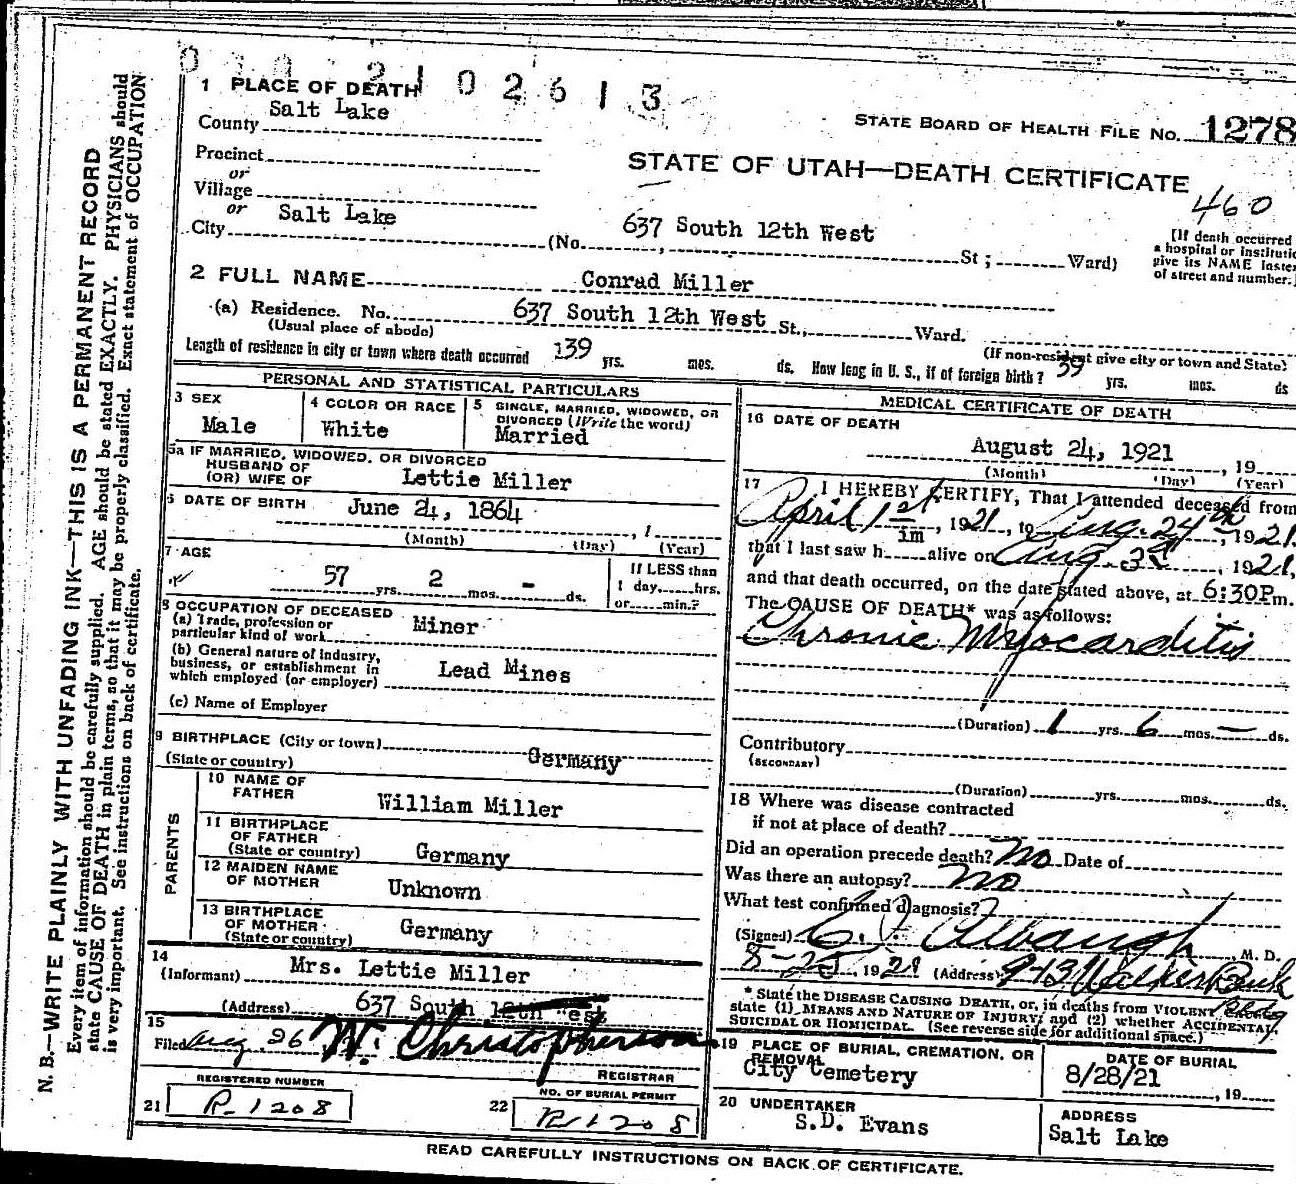 2 1 0 2 6 1 3
1 PLACE OF DEATH
County Salt Lake
STATE BOARD OF HEALTH FILE NO. 1278
Precinct
or
Village
STATE OF UTAH—DEATH CERTIFICATE
460
or
City Salt Lake (No. 637 South 12th West St; Ward)
[If death occurred
a hospital or institution
give its NAME instead
of street and number.]
2 FULL NAME Conrad Miller
(a) Residence. No. 637 South 12th West St., Ward.
(Usual place of abode)
(If non-resident give city or town and State)
Length of residence in city or town where death occurred 139 yrs. mos. ds. How long in U. S., if of foreign birth? 39 yrs. mos. ds
PERSONAL AND STATISTICAL PARTICULARS
3 SEX
Male
4 COLOR OR RACE
White
5 SINGLE, MARRIED, WIDOWED, OR
DIVORCED (Write the word)
Married
5a IF MARRIED, WIDOWED, OR DIVORCED
HUSBAND OF
(OR) WIFE OF Lettie Miller
6 DATE OF BIRTH June 24, 1864, 1
(Month) (Day) (Year)
7 AGE
57 yrs. 2 mos. - ds.
If LESS than
1 day, hrs.
or min.?
8 OCCUPATION OF DECEASED
(a) Trade, profession or
particular kind of work Miner
(b) General nature of industry,
business, or establishment in
which employed (or employer) Lead Mines
(c) Name of Employer
9 BIRTHPLACE (City or town)
(State or country) Germany
PARENTS
10 NAME OF
FATHER William Miller
11 BIRTHPLACE
OF FATHER
(State or country) Germany
12 MAIDEN NAME
OF MOTHER Unknown
13 BIRTHPLACE
OF MOTHER
(State or country) Germany
14
(Informant) Mrs. Lettie Miller
(Address) 637 South 12th West
15
Filed Aug. 26 W. Christopherson
REGISTRAR
REGISTERED NUMBER
21 R-1208
NO. OF BURIAL PERMIT
22 R-1208
MEDICAL CERTIFICATE OF DEATH
16 DATE OF DEATH
August 24, 1921, 19
(Month) (Day) (Year)
17 I HEREBY CERTIFY, That I attended deceased from
April 1st, 1921, to Aug. 24th, 1921
that I last saw him alive on Aug. 3d, 1921,
and that death occurred, on the date stated above, at 6:30Pm.
The CAUSE OF DEATH* was as follows:
Chronic Myocarditis
(Duration) 1 yrs. 6 mos. — ds.
Contributory
(SECONDARY)
(Duration) yrs. mos. ds.
18 Where was disease contracted
if not at place of death?
Did an operation precede death? No Date of
Was there an autopsy? No
What test confirmed diagnosis?
(Signed) Albaugh, M. D.
8-25, 1921 (Address) 913 Walker Bank
Bldg
* State the DISEASE CAUSING DEATH, or, in deaths from VIOLENT
state (1) MEANS AND NATURE OF INJURY; and (2) whether ACCIDENTAL,
SUICIDAL OR HOMICIDAL. (See reverse side for additional space.)
19 PLACE OF BURIAL, CREMATION, OR
REMOVAL
City Cemetery
DATE OF BURIAL
8/28/21, 19
20 UNDERTAKER
S.D. Evans
ADDRESS
Salt Lake
READ CAREFULLY INSTRUCTIONS ON BACK OF CERTIFICATE.
N. B.—WRITE PLAINLY WITH UNFADING INK—THIS IS A PERMANENT RECORD
Every item of information should be carefully supplied. AGE should be stated EXACTLY. PHYSICIANS should
state CAUSE OF DEATH in plain terms, so that it may be properly classified. Exact statement of OCCUPATION
is very important. See instructions on back of certificate.